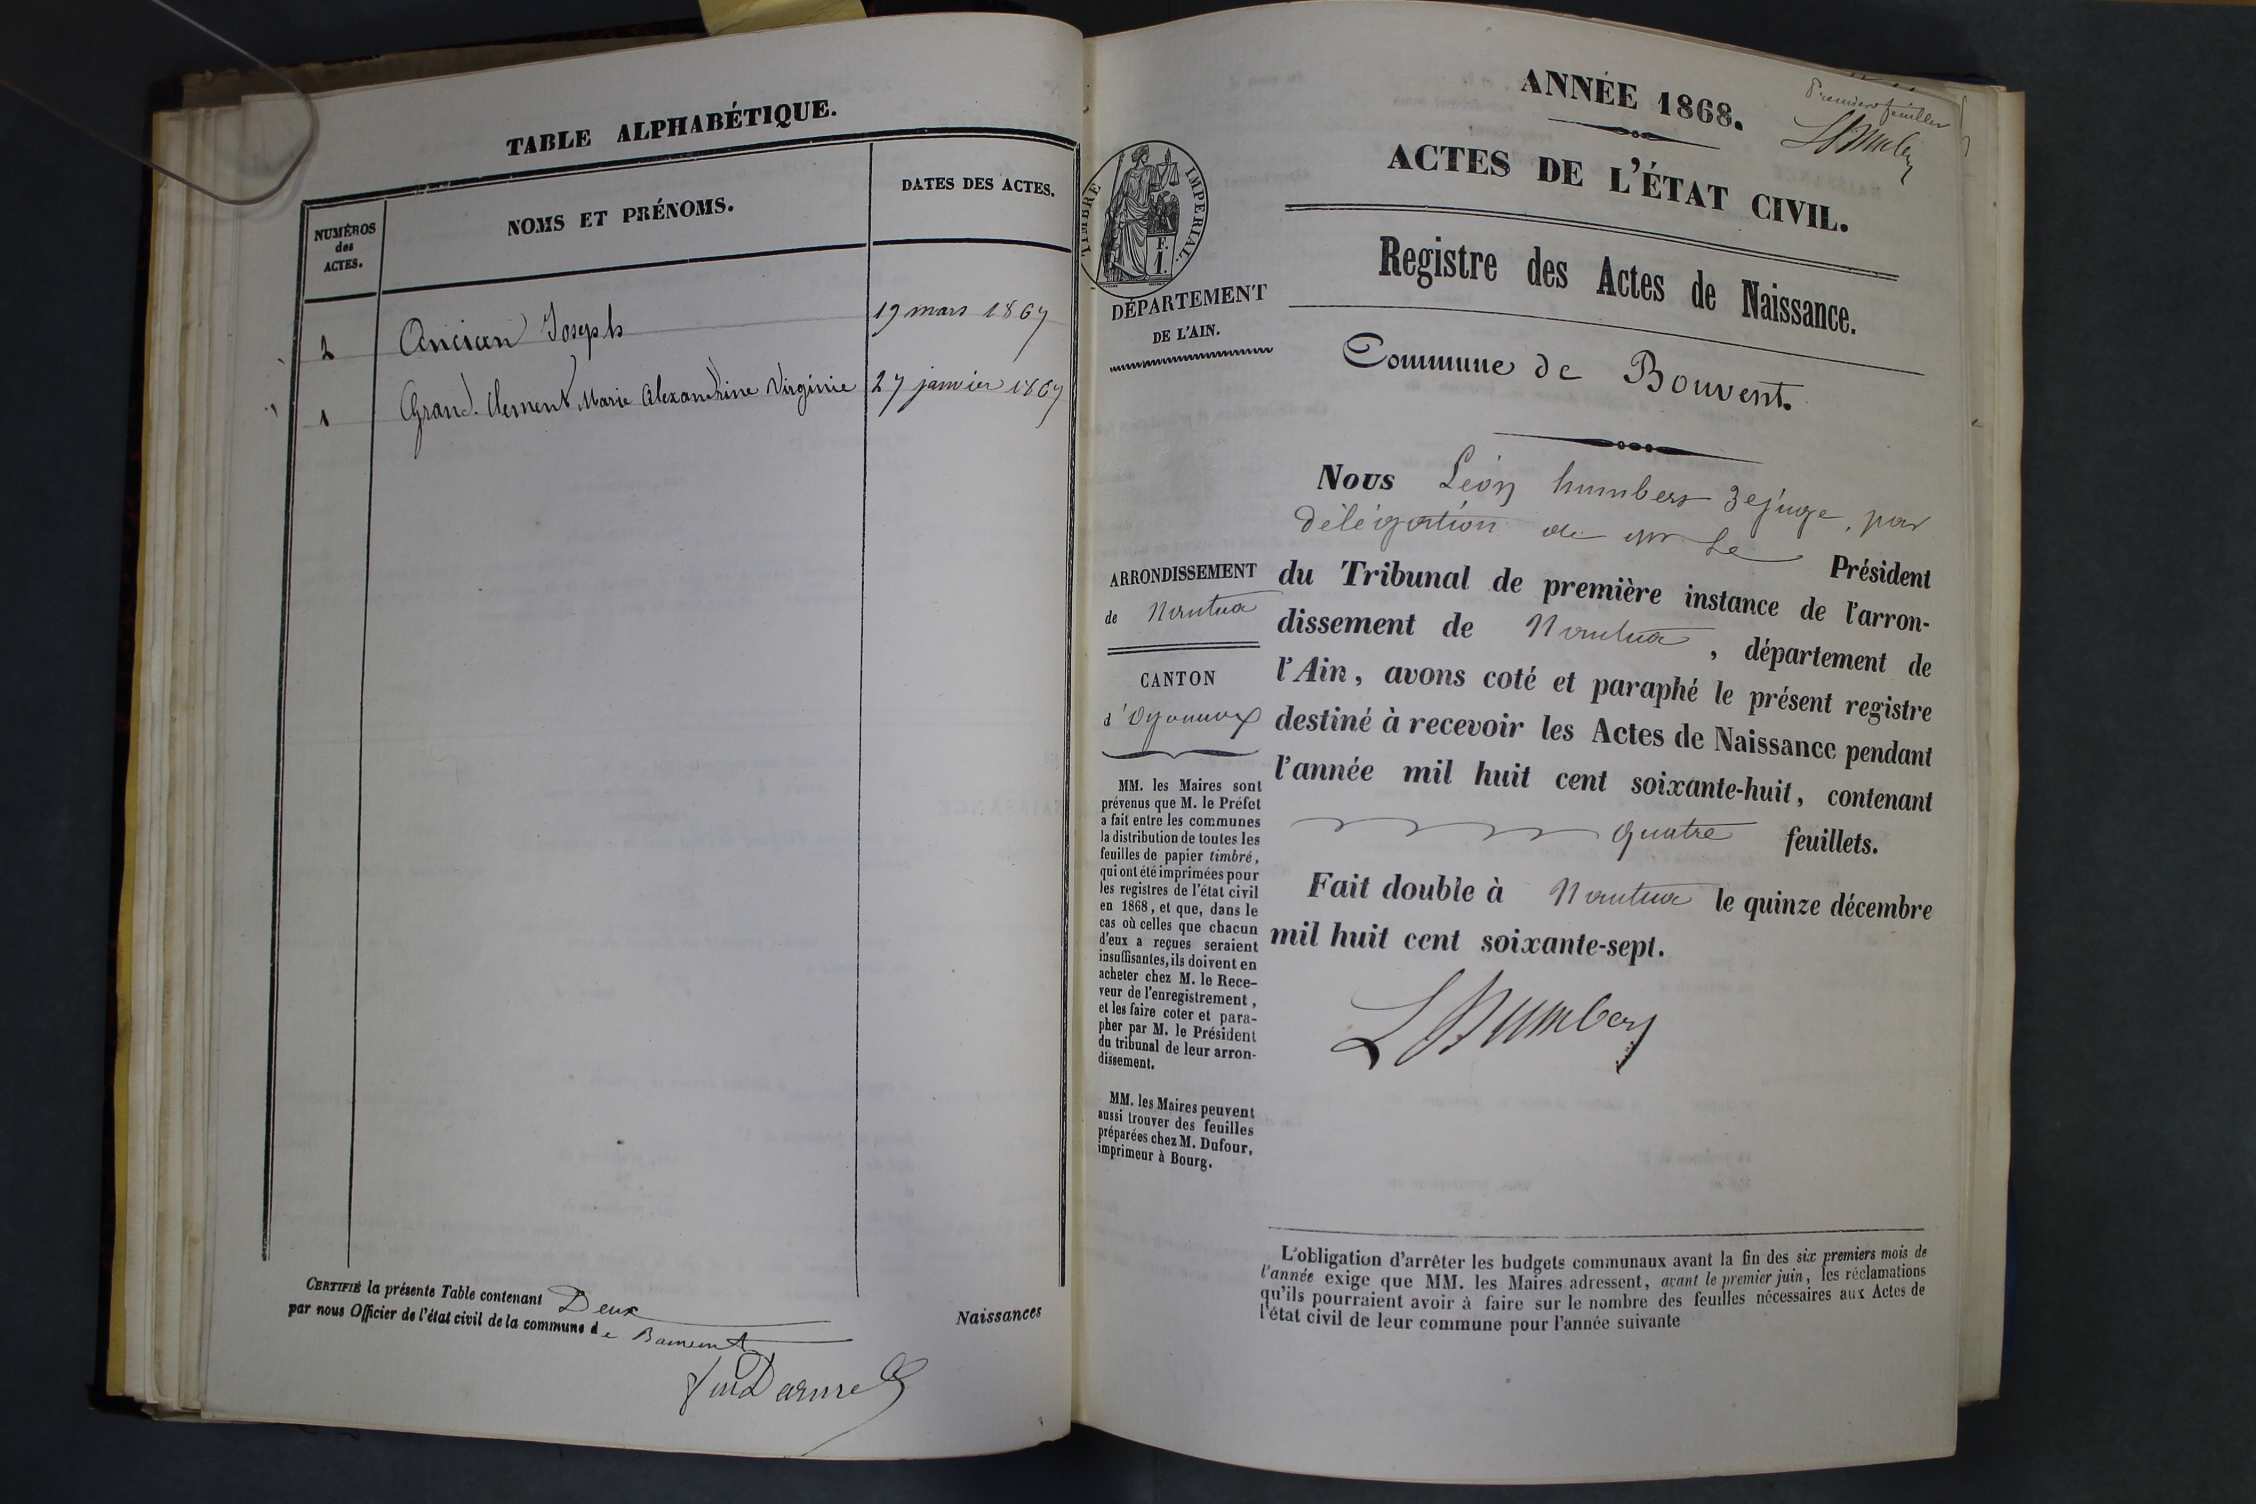 TABLE ALPHABÉTIQUE.
NUMÉROS
des
ACTES.
NOMS ET PRÉNOMS.
DATES DES ACTES.
2 Ancian Joseph 19 mars 1867
1 Grand-Clement Marie Alexandrine Virginie 27 janvier 1867
CERTIFIÉ la présente Table contenant Deux Naissances
par nous Officier de l'état civil de la commune de Bouvent
ANNÉE 1868.
Premier feuillet
L Humbert
ACTES DE L'ÉTAT CIVIL.
Registre des Actes de Naissance.
TIMBRE IMPERIAL.
F.
1.
DÉPARTEMENT
DE L'AIN.
Commune de Bouvent.
Nous Léon humbert juge, par
délégation de Mr Le Président
du Tribunal de première instance de l'arron-
dissement de Nantua, département de
l'Ain, avons coté et paraphé le présent registre
destiné à recevoir les Actes de Naissance pendant
l'année mil huit cent soixante-huit, contenant
quatre feuillets.
Fait double à Nantua le quinze décembre
mil huit cent soixante-sept.
L Humbert
ARRONDISSEMENT
de Nantua
CANTON
d'Oyonnax
MM. les Maires sont
prévenus que M. le Préfet
a fait entre les communes
la distribution de toutes les
feuilles de papier timbré,
qui ont été imprimées pour
les registres de l'état civil
en 1868, et que, dans le
cas où celles que chacun
d'eux a reçues seraient
insuffisantes, ils doivent en
acheter chez M. le Rece-
veur de l'enregistrement,
et les faire coter et para-
pher par M. le Président
du tribunal de leur arron-
dissement.
MM. les Maires peuvent
aussi trouver des feuilles
préparées chez M. Dufour,
imprimeur à Bourg.
L'obligation d'arrêter les budgets communaux avant la fin des six premiers mois de
l'année exige que MM. les Maires adressent, avant le premier juin, les réclamations
qu'ils pourraient avoir à faire sur le nombre des feuilles nécessaires aux Actes de
l'état civil de leur commune pour l'année suivante